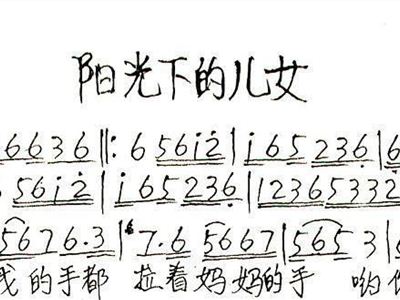 阳光下的儿女
6636 ‖: 6 56i̇2̇ | i̇65 236̣ | 6
56i̇2̇ | i̇65 236̣ | 12365332
5676.3 | 7.6 5667 | 565 3 | 6
我的手都 拉着妈妈的手 哟